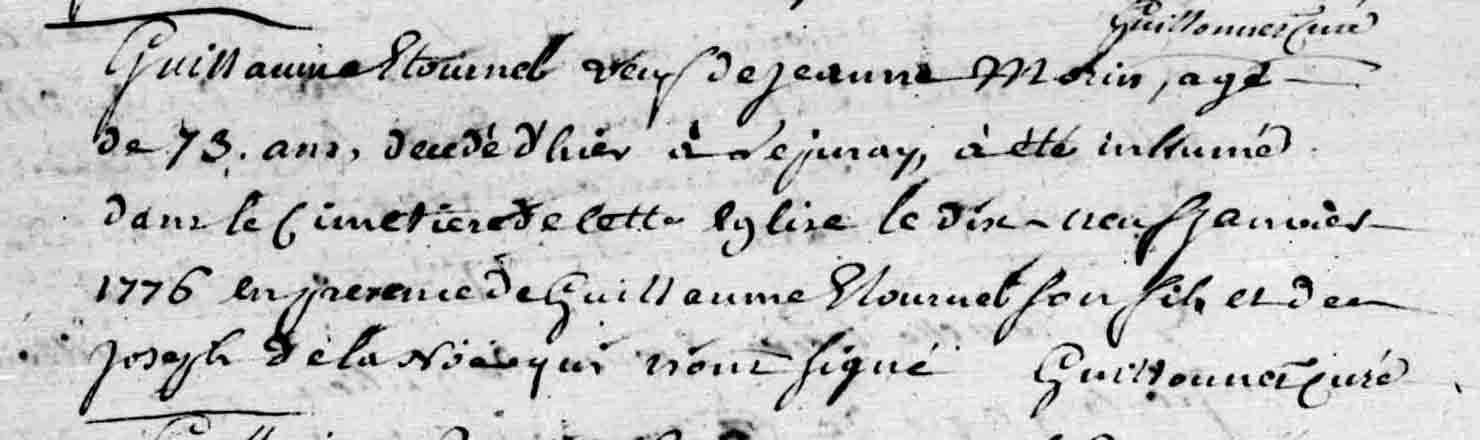 Guillonnet Curé
Guillaume Etournel veuf de jeanne Morin, agé
de 73. ans, decedé d'hier à Lejuray, à été inhumé
dans le Cimetiere de cette Eglise le dix-neuf janvier
1776 en presence de Guillaume Etournel son fils et de
joseph de la Noë qui n'ont signé Guillonnet Curé